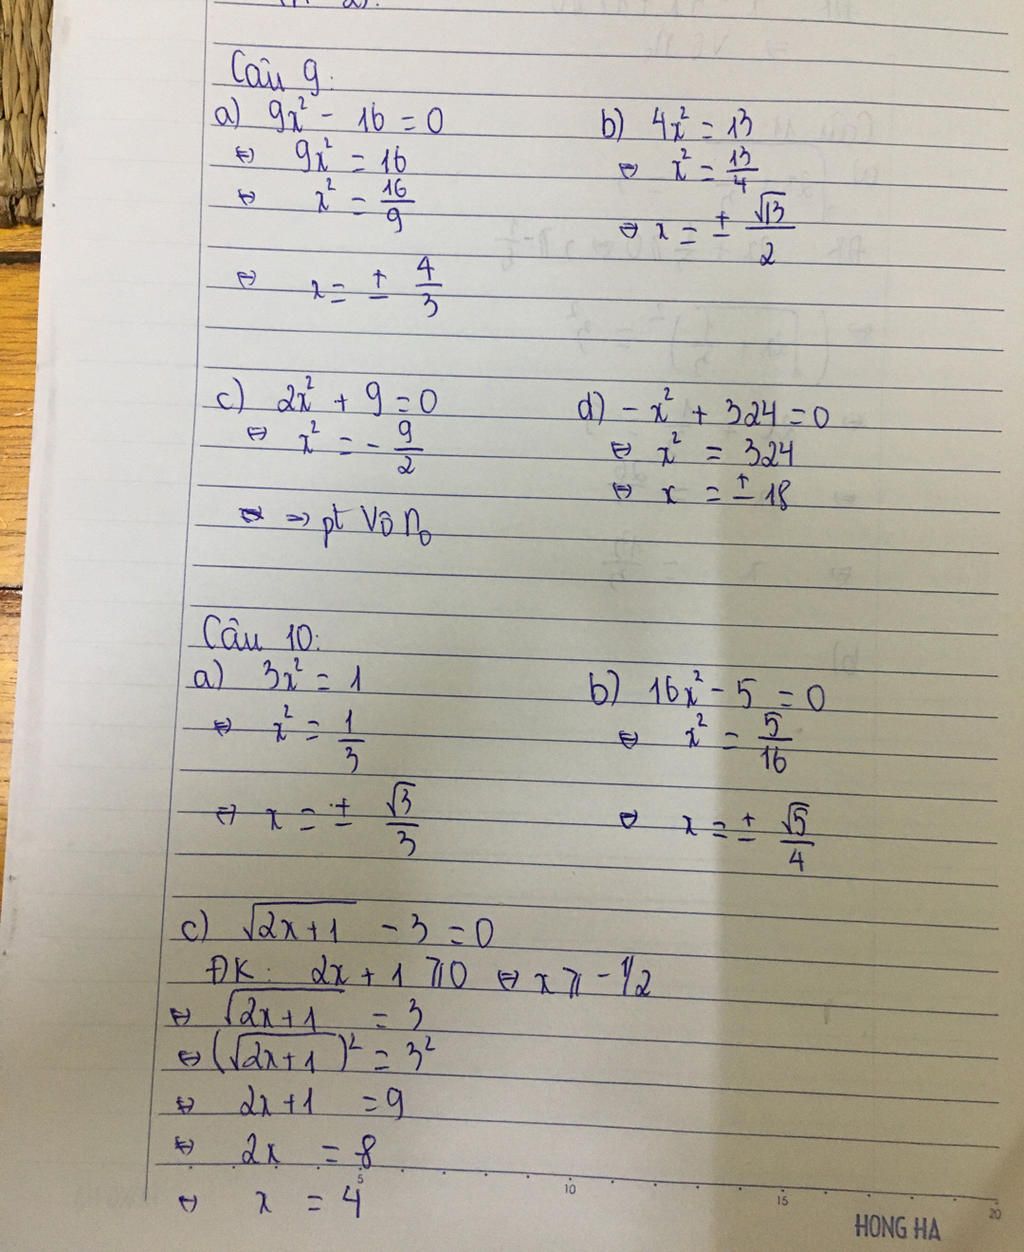 Câu 9:
a) 9x² - 16 = 0
⇔ 9x² = 16
⇔ x² = 16/9
⇔ x = ± 4/3
b) 4x² = 13
⇔ x² = 13/4
⇔ x = ± √13/2
c) 2x² + 9 = 0
⇔ x² = - 9/2
⇒ pt Vô n₀
d) - x² + 324 = 0
⇔ x² = 324
⇔ x = ± 18
Câu 10:
a) 3x² = 1
⇔ x² = 1/3
⇔ x = ± √3/3
b) 16x² - 5 = 0
⇔ x² = 5/16
⇔ x = ± √5/4
c) √(2x+1) - 3 = 0
ĐK: 2x + 1 ≥ 0 ⇔ x ≥ -1/2
⇔ √(2x+1) = 3
⇔ (√(2x+1))² = 3²
⇔ 2x+1 = 9
⇔ 2x = 8
⇔ x = 4
5 10 15 20
HONG HA